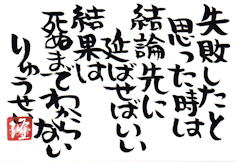 失敗したと
思った時は
結論先に
延ばせばいい
結果は
死ぬまでわからない
りゅうせい